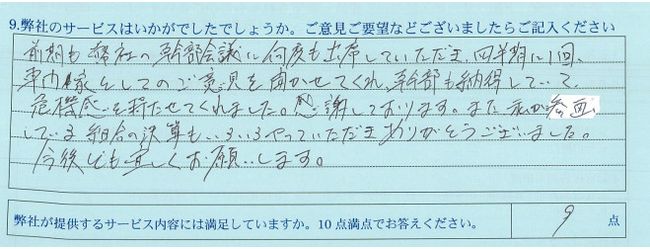 9.弊社のサービスはいかがでしたでしょうか。ご意見ご要望などございましたらご記入ください
前期も弊社の幹部会議に何度も出席していただき、四半期に1回、
専門家としてのご意見を聞かせてくれ、幹部も納得していて
危機感を持たせてくれました。感謝しております。また私が参画
している組合の決算もいろいろやっていただきありがとうございました。
今後とも宜しくお願いします。
弊社が提供するサービス内容には満足していますか。10点満点でお答えください。 9 点